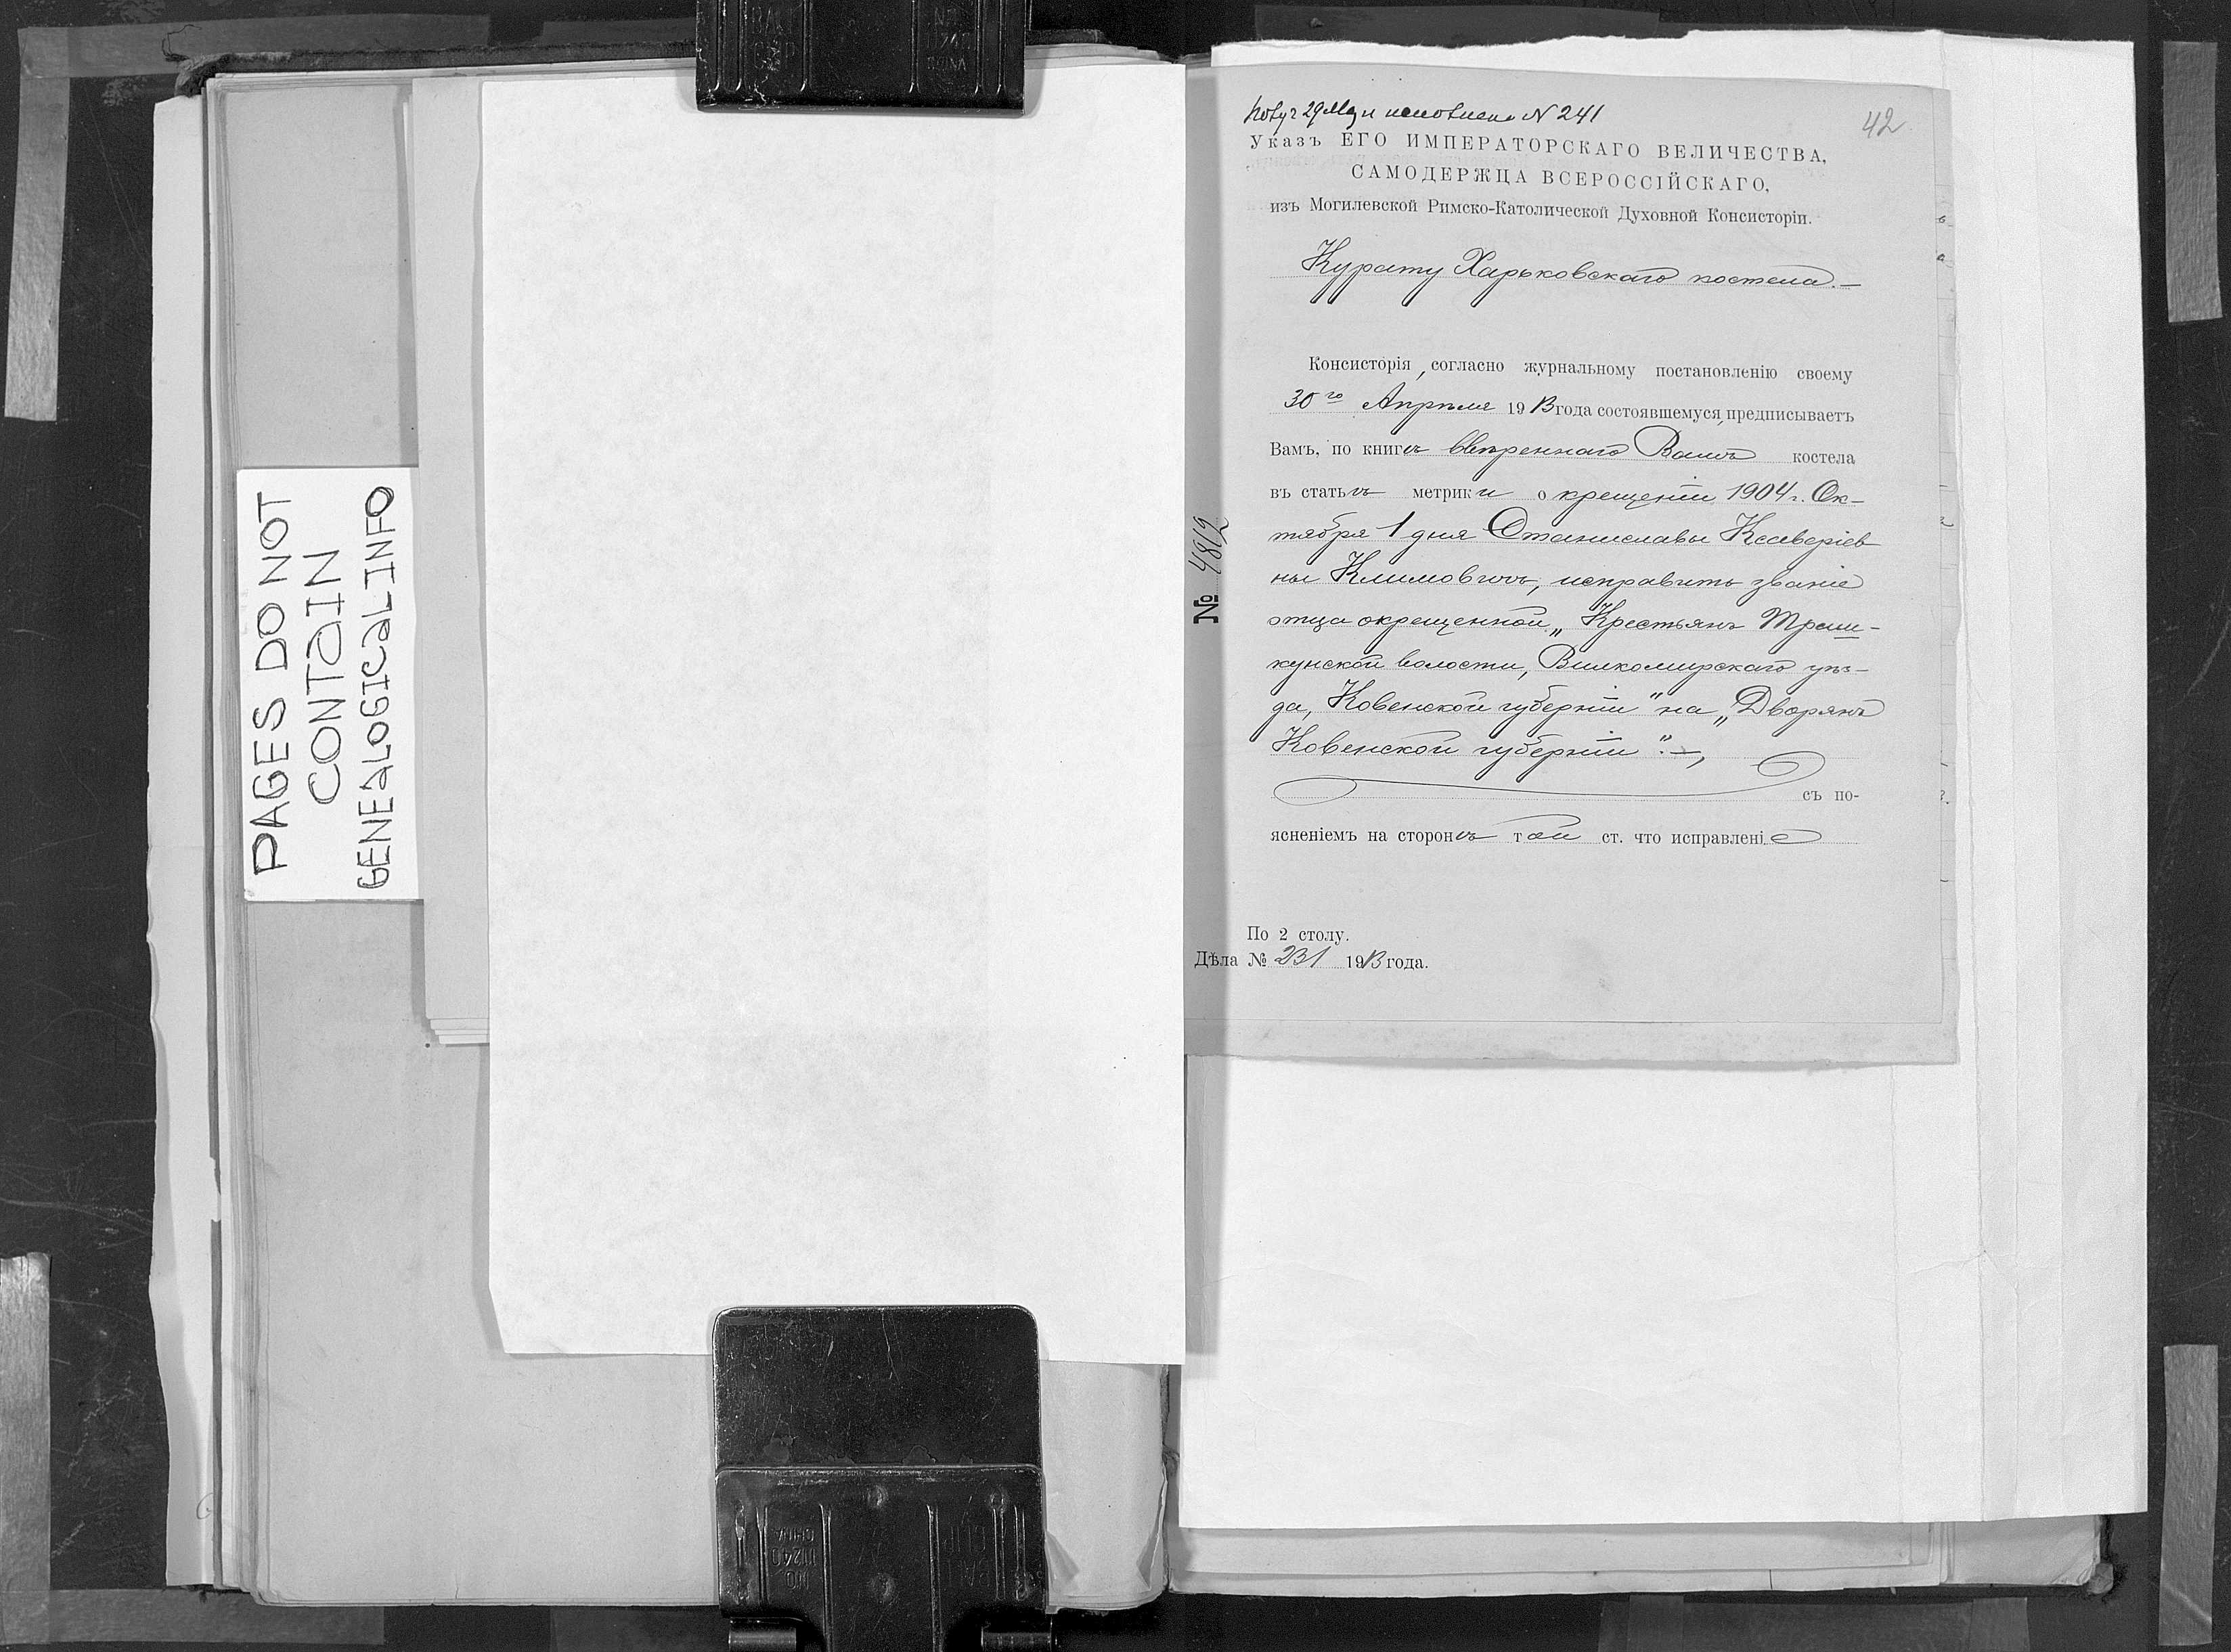 PAGES DO NOT
CONTAIN
GENEALOGICAL INFO
29 Мая и исполнено N 241
42
Указъ ЕГО ИМПЕРАТОРСКАГО ВЕЛИЧЕСТВА,
САМОДЕРЖЦА ВСЕРОССІЙСКАГО,
изъ Могилевской Римско-Католической Духовной Консисторіи.
Курату Харьковскаго костела.—
Консисторія, согласно журнальному постановленію своему
30го Апрѣля 1913 года состоявшемуся, предписываетъ
Вамъ, по книгѣ ввѣреннаго Вамъ костела
въ статьѣ метрики о крещеніи 1904 г. Ок-
тября 1 дня Станиславы Ксаверіев
ны Климовичъ, исправить званіе
отца окрещенной „Крестьянъ Траш-
кунской волости, Вилкомирскаго уѣз-
да, Ковенской губерніи" на „Дворянъ
Ковенской губерніи".—,
съ по-
ясненіемъ на сторонѣ той ст. что исправленіе
По 2 столу.
Дѣла № 231 1913 года.
№ 4812